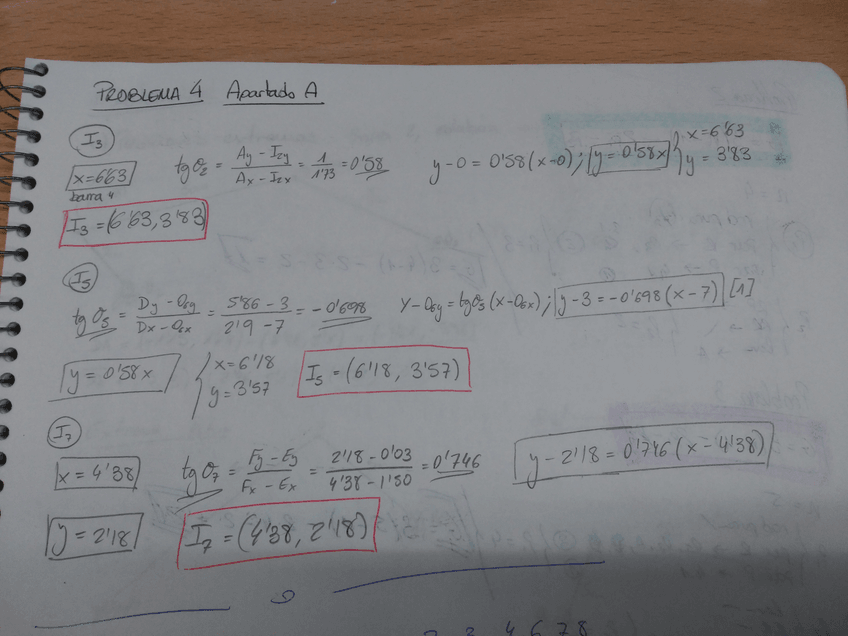 PROBLEMA 4 Apartado A
I3
x=6'63 tgθ2 = (Ay - I2y)/(Ax - I2x) = 1/1'73 = 0'58 y-0 = 0'58(x-0); y=0'58x { x=6'63 y=3'83
barra 4
I3 = (6'63, 3'83)
I5
tgθ5 = (Dy - O6y)/(Dx - O6x) = (5'86 - 3)/(2'9 - 7) = -0'698 Y-O6y = tgθ5(x-O6x); y-3 = -0'698(x-7) [1]
y=0'58x { x=6'18 y=3'57 I5 = (6'18, 3'57)
I7
x=4'38 tgθ7 = (Fy - Ey)/(Fx - Ex) = (2'18 - 0'03)/(4'38 - 1'50) = 0'746 y-2'18 = 0'746(x-4'38)
y=2'18 I7 = (4'38, 2'18)